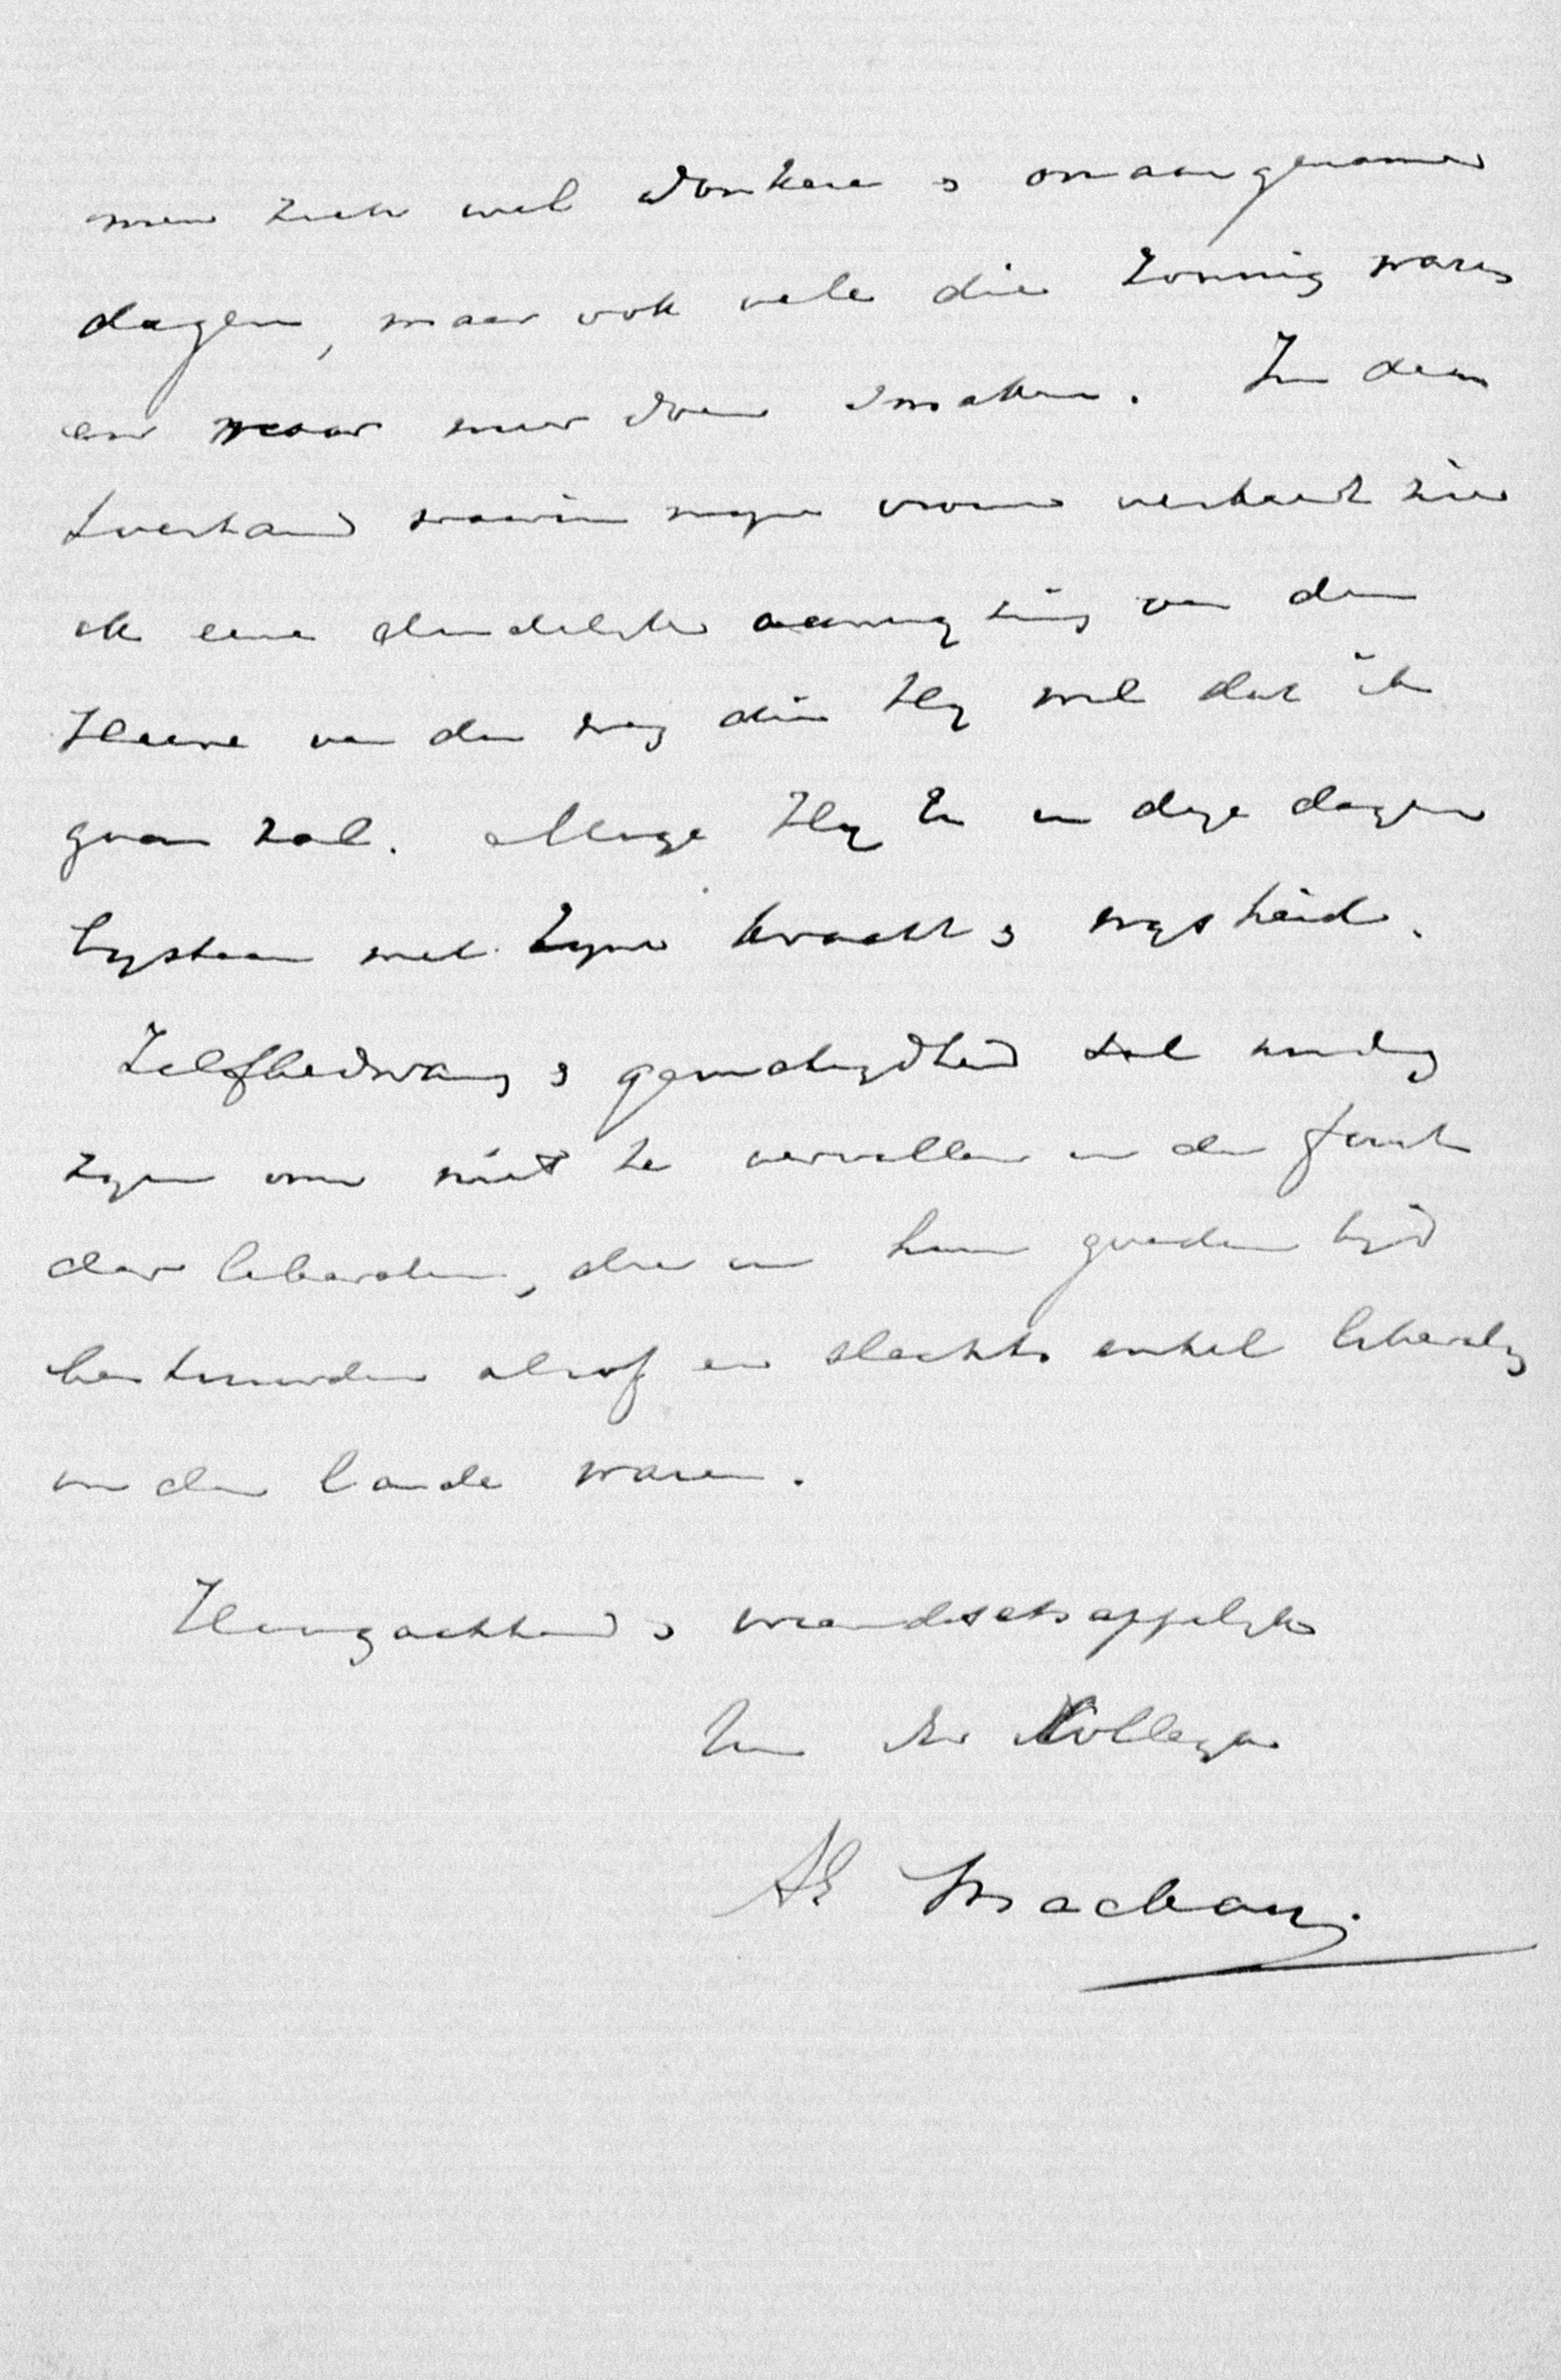 men zich wel donkere & onaangename
dagen, maar ook vele die zonnig waren
en waar men doen smaken. In den
toestand waarin myne vrouw verkeert zie
ik eene duidelyke aanwyzing van den
Heere van den weg dien Hy wil dat ik
gaan zal. Moge Hy U in deze dagen
bystaan met Zyne kracht & wysheid.
Zelfbedwang & gematigdheid zal noodig
zyn om niet te vervallen in de fout
der liberalen, die in hun goeden tyd
bestuurden alsof er slechts enkel liberalen
in den lande waren.
Hoogachtend & vriendschappelyk
Uw Dr Kollega
AE Mackay.